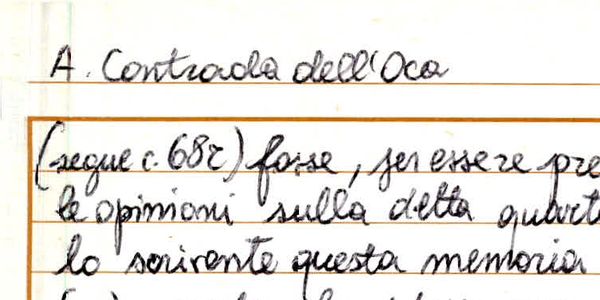 A. Contrada dell'Oca
(segue c. 68r) fosse, per essere pre
le opinioni sulla detta quart
lo scrivente questa memoria